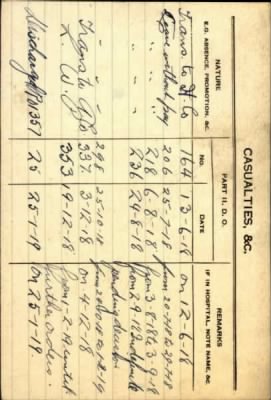 CASUALTIES, &C.
NATURE
E.G. ABSENCE, PROMOTION, &C.
PART II. D. O.
NO.
DATE
REMARKS
IF IN HOSPITAL, NOTE NAME, &C.
Trans to H.Co 164 13-6-18 on 12-6-18
Leave without pay 206 25-7-18 from 20-7-18 to 29-7-18
" " " 218 6-8-18 from 3-8-18 to 3-9-18
" " " 236 24-8-18 from 2-9-18
pending discharge
" " 298 25-10-18
Trans to 337 3-12-18 on 4-12-18
L. W. P. 353 19-12-18 from 1-1-19 until
further orders.
Discharged 1357 25 25-1-19 on 25-1-19